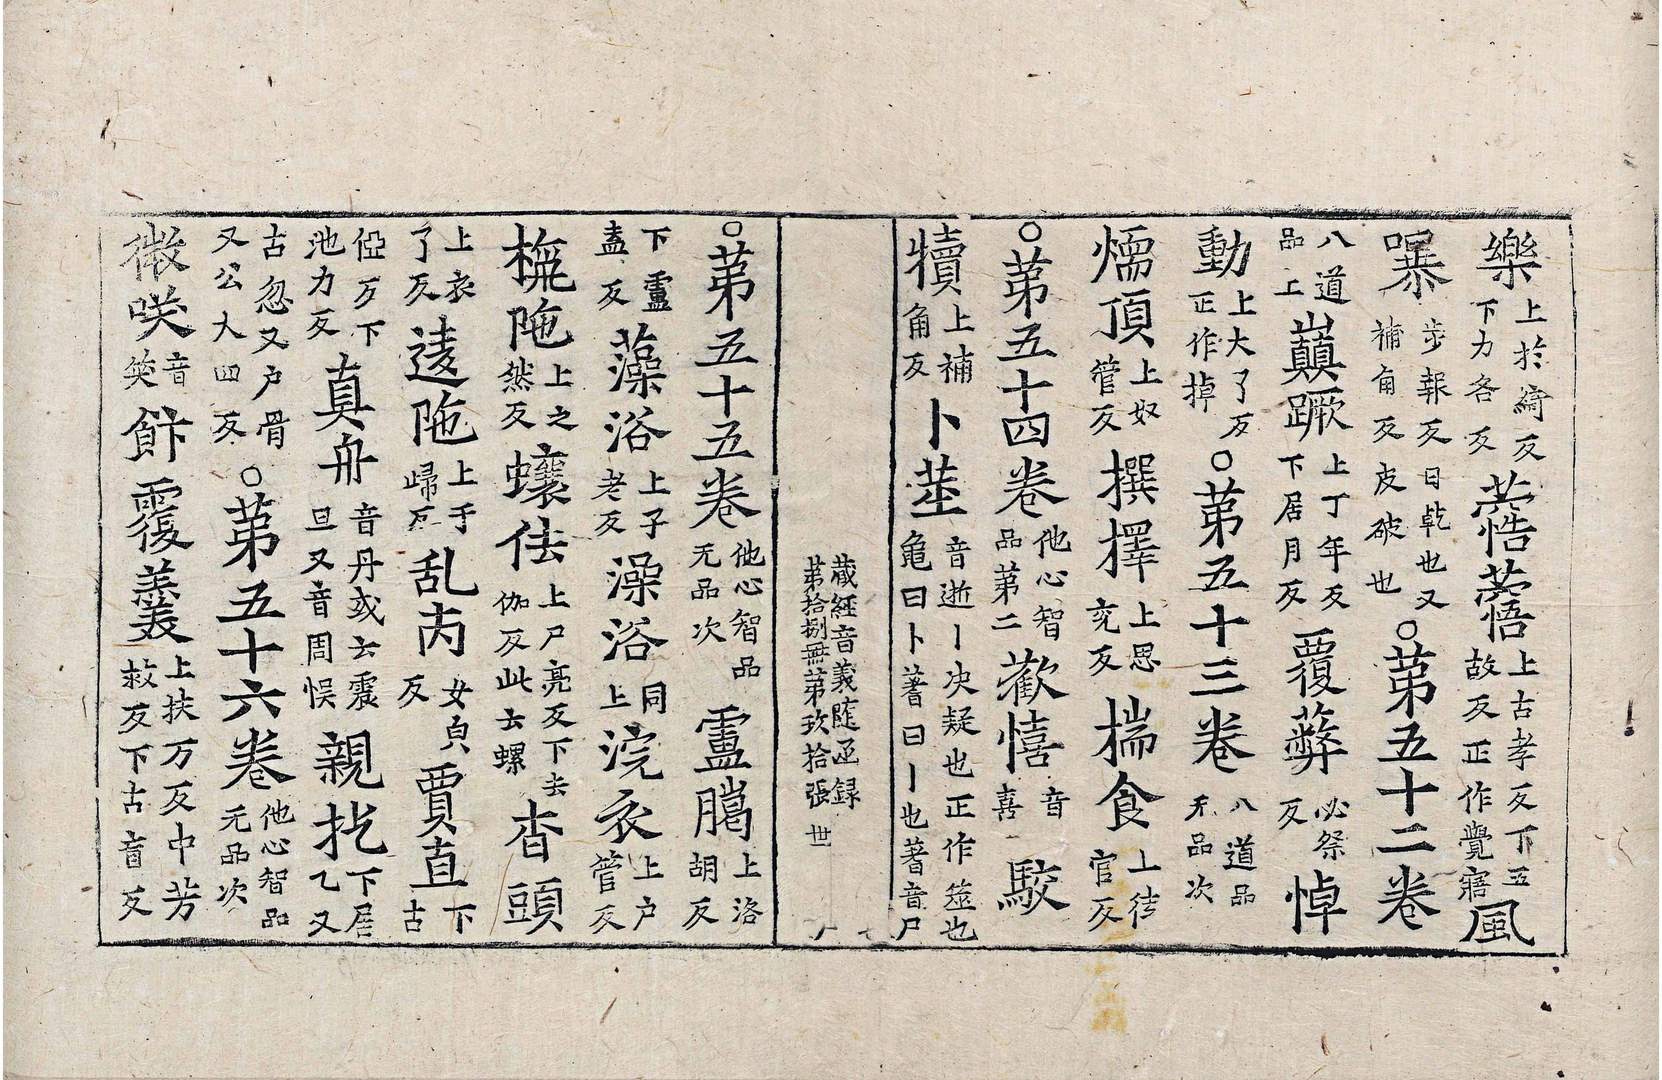 樂上於綺反下力各反𦿆𦿆上古孝反下五故反正作覺寤風
暴步報反日乾也又補角反皮破也○第五十二卷
八道品上巔蹶上丁年反下居月反覆蔽必祭反悼
動上大了反正作掉○第五十三卷八道品无品次
㷄頂上奴管反撰擇上思兗反揣食上徒官反
○第五十四卷他心智品第二歡憘音喜駮
犢上補角反卜莁音逝丨决疑也正作筮也龜曰卜蓍曰丨也蓍音尸
藏經音義隨函録
第拾捌冊第玖拾張 世
○第五十五卷他心智品无品次盧臈上洛胡反
下盧盍反藻浴上子老反澡浴同上浣衣上户管反
㮈陁上之然反蠰佉上尸亮反下去伽反此云螺杳頭
上衣了反逵陁上于歸反乱芮女貞反賈直下古
俹反下池力反真舟音丹或云震旦又音周悮親扢下居乙又
古忽又户骨又公大四反○第五十六卷他心智品无品次
微咲音笑餰覆羲上扶万反中芳救反下古盲反